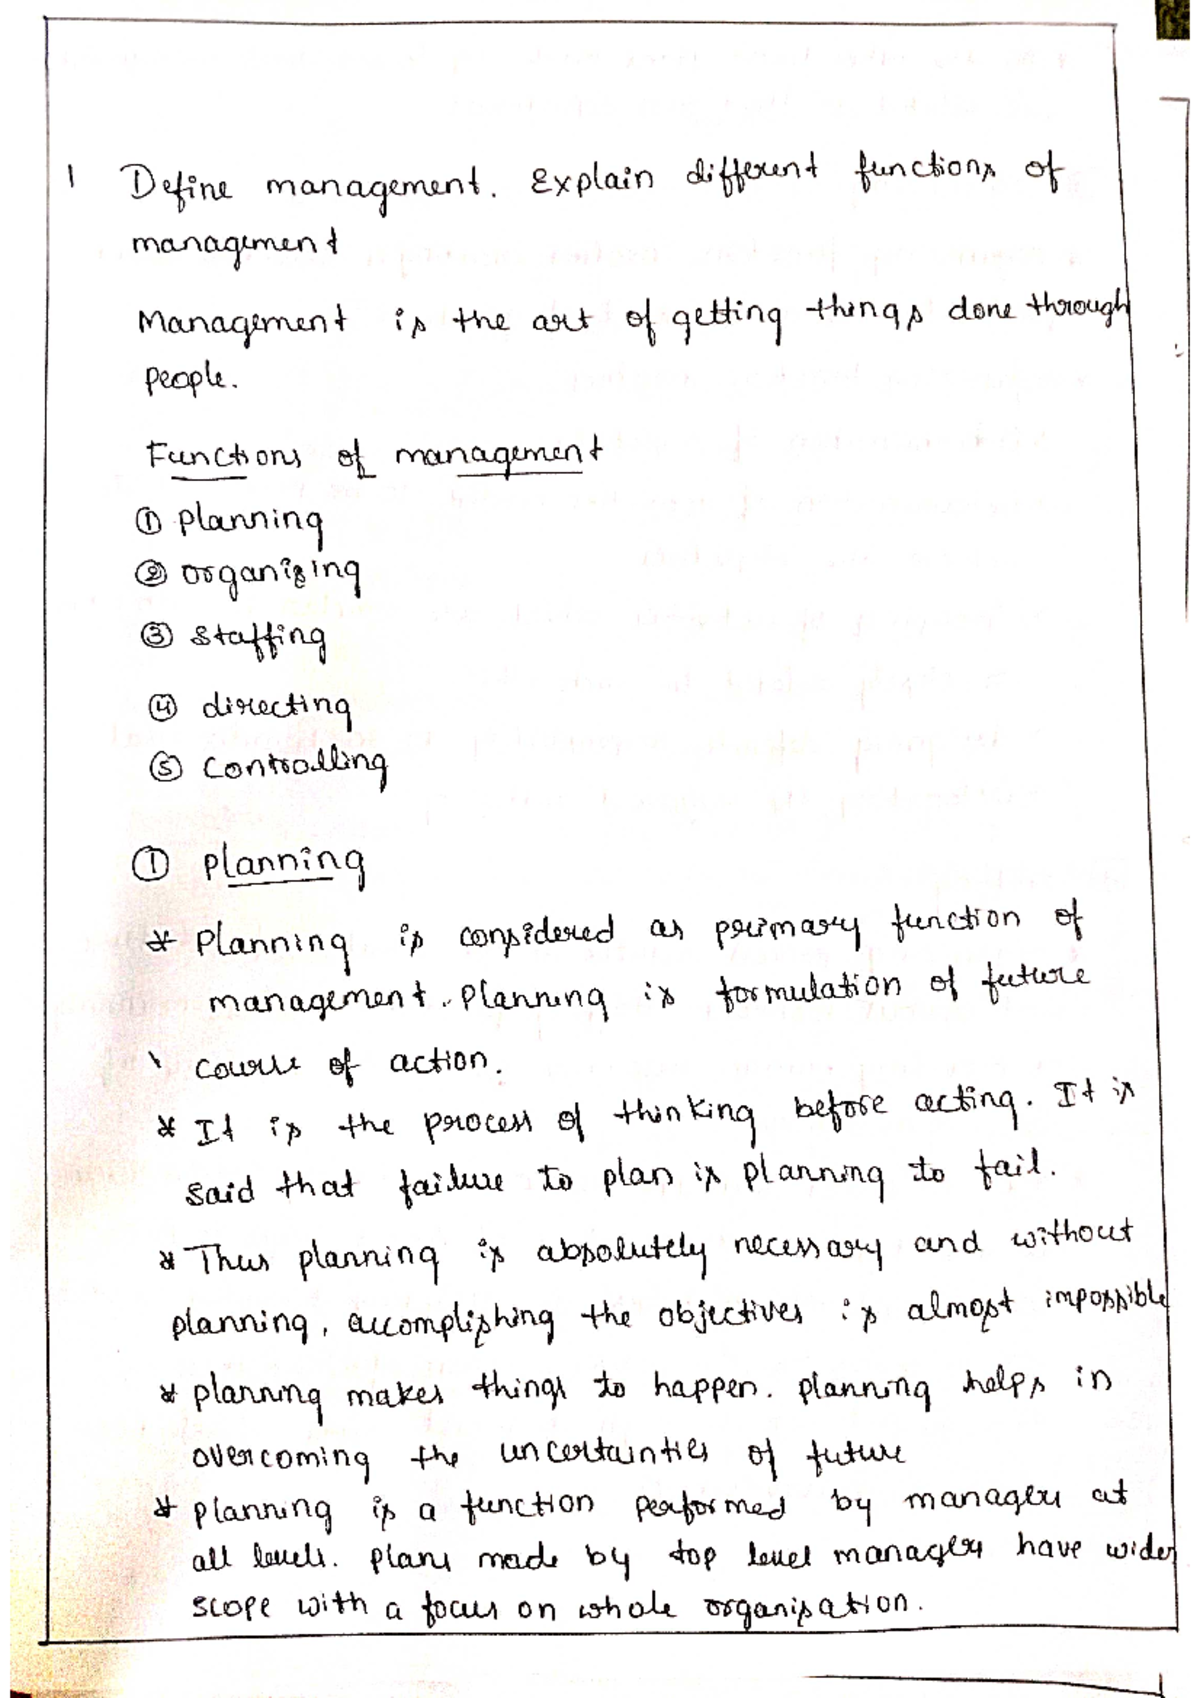 1 Define management. Explain different functions of
management
Management is the art of getting things done through
people.
Functions of management
① planning
② organising
③ staffing
④ directing
⑤ controlling
① planning
* planning is considered as primary function of
management. planning is formulation of future
course of action.
* It is the process of thinking before acting. It is
said that failure to plan is planning to fail.
* Thus planning is absolutely necessary and without
planning, accomplishing the objectives is almost impossible
* planning makes things to happen. planning helps in
overcoming the uncertainties of future
* planning is a function performed by managers at
all levels. plans made by top level managers have wider
scope with a focus on whole organisation.